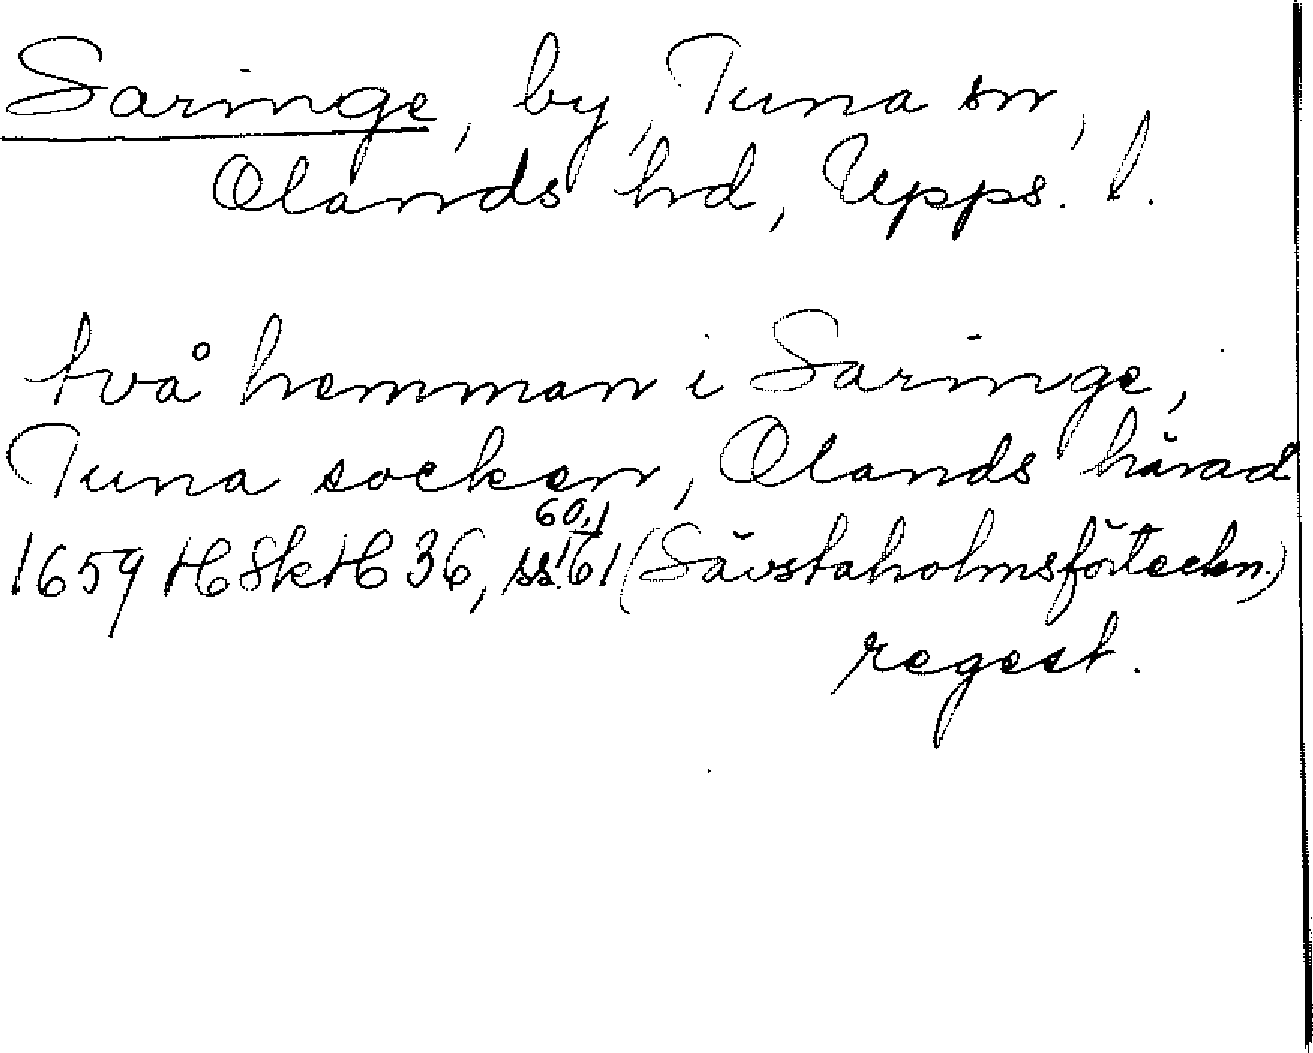 Saringe, by, Tuna sn,
Olands hd, Upps. l.
två hemman i Saringe,
Tuna socken, Olands härad
1659 HSkH 36, ss. 60, 61 (Sävstaholmsförteckn.)
regest.